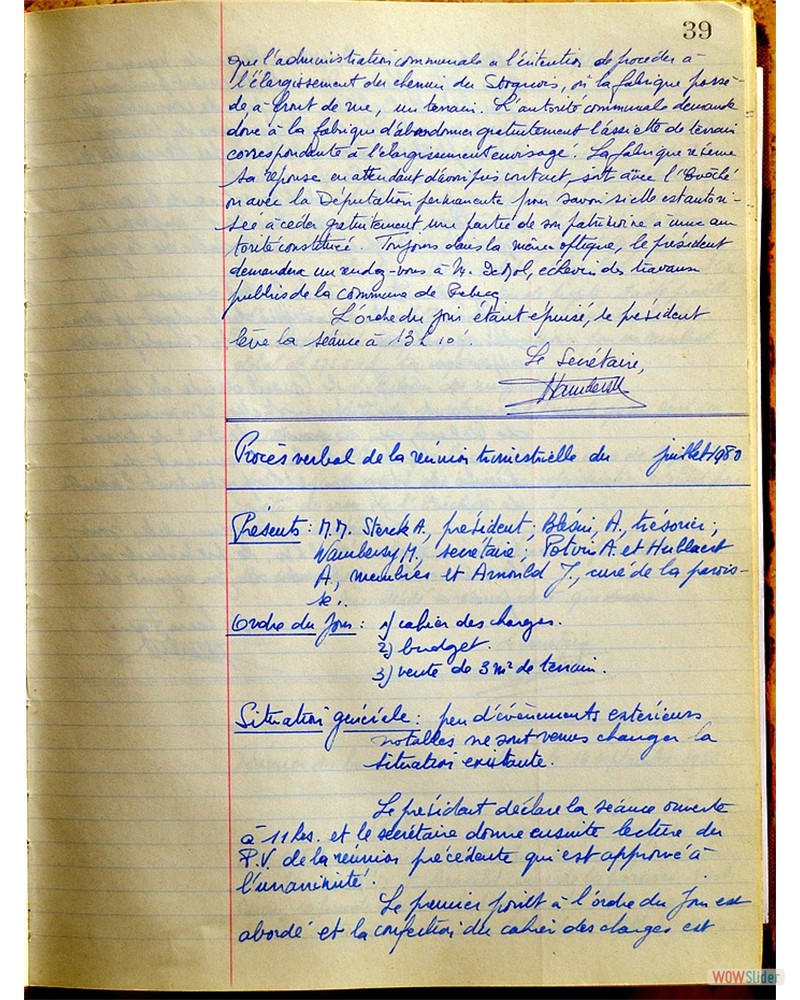 39
que l'administration communale a l'intention de procéder à
l'élargissement du chemin du Stognois, où la fabrique possè-
de à front de rue, un terrain. L'autorité communale demande
donc à la fabrique d'abandonner gratuitement l'assiette de terrain
correspondante à l'élargissement envisagé. La fabrique réserve
sa réponse en attendant d'avoir pris contact, soit avec l'Evêché
ou avec la Députation permanente pour savoir si elle est autori-
sée à céder gratuitement une partie de son patrimoine à une au
torité constituée. Toujours dans la même optique, le président
demandera un rendez-vous à M. Demol, échevin des travaux
publics de la commune de Rebecq.
L'ordre du jour étant épuisé, le président
lève la séance à 13h 10'.
Le Secrétaire,
Procès verbal de la réunion trimestrielle du juillet 1980
Présents : M.M. Sterck A., président, Blésin, A., trésorier;
Wambersy M., secrétaire; Potvin A. et Hublaert
A., membres et Arnould J., curé de la parois-
se.
Ordre du Jour : 1) cahier des charges.
2) budget.
3) vente de 3 m² de terrain.
Situation générale : peu d'évènements extérieurs
notables ne sont venus changer la
situation existante.
Le président déclare la séance ouverte
à 11 hrs. et le secrétaire donne ensuite lecture du
P.V. de la réunion précédente qui est approuvé à
l'unanimité.
Le premier point à l'ordre du Jour est
abordé et la confection du cahier des charges est
WOWSlider